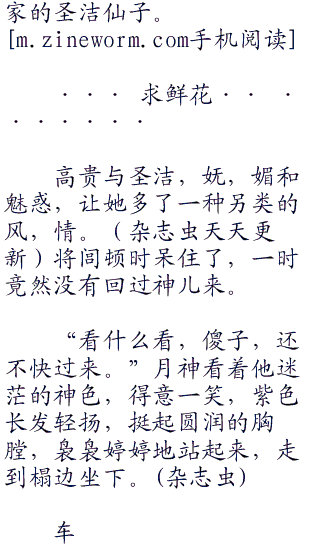 家的圣洁仙子。
[m.zineworm.com手机阅读]
· · · 求鲜花 · · ·
· · · · · ·
高贵与圣洁，妩，媚和
魅惑，让她多了一种另类的
风，情。（杂志虫天天更
新）将闾顿时呆住了，一时
竟然没有回过神儿来。
“看什么看，傻子，还
不快过来。”月神看着他迷
茫的神色，得意一笑，紫色
长发轻扬，挺起圆润的胸
膛，袅袅婷婷地站起来，走
到榻边坐下。(杂志虫)
车